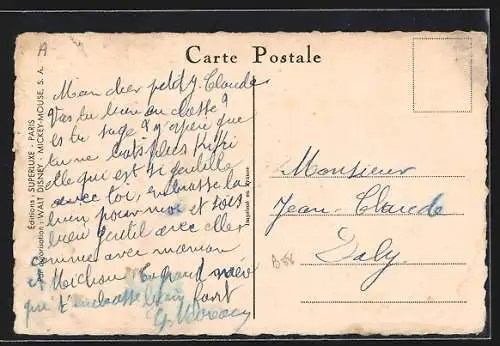 A
Carte Postale
Mon cher petit J. Claude
Vas tu bien en classe?
es tu sage? J'espère que
tu ne bats plus Fiffi
elle qui est si gentille
avec toi, embrasse la
bien pour moi et sois
bien gentil avec elle
comme avec maman
et Michou. Ta grand mère
qui t'embrasse bien fort
Monsieur
Jean-Claude
Daly
B86
Editions: SUPERLUXE - PARIS
Par Autorisation: WALT DISNEY - MICKEY-MOUSE, S. A.
Imprimé en France